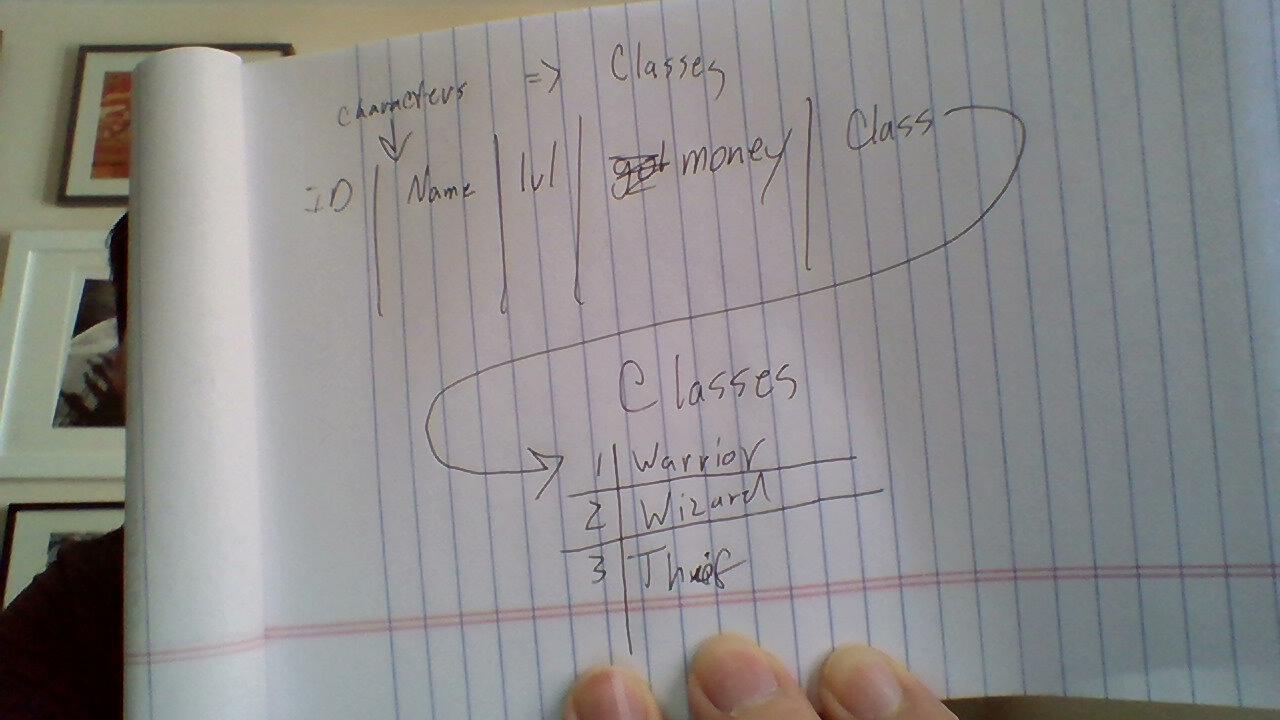 characters => Classes
ID | Name | lvl | money | Class
Classes
1 | Warrior
2 | Wizard
3 | Thief